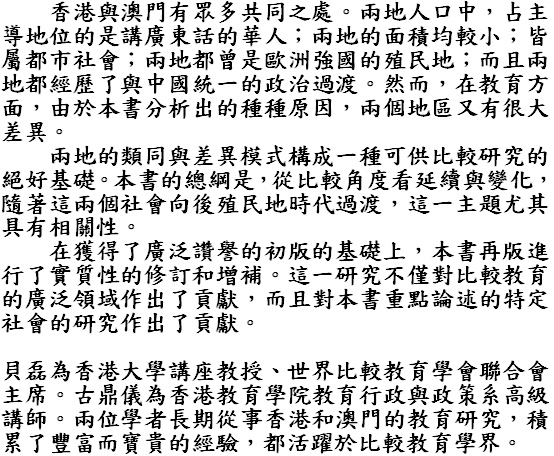 香港與澳門有眾多共同之處。兩地人口中，占主
導地位的是講廣東話的華人；兩地的面積均較小；皆
屬都市社會；兩地都曾是歐洲強國的殖民地；而且兩
地都經歷了與中國統一的政治過渡。然而，在教育方
面，由於本書分析出的種種原因，兩個地區又有很大
差異。
兩地的類同與差異模式構成一種可供比較研究的
絕好基礎。本書的總綱是，從比較角度看延續與變化，
隨著這兩個社會向後殖民地時代過渡，這一主題尤其
具有相關性。
在獲得了廣泛讚譽的初版的基礎上，本書再版進
行了實質性的修訂和增補。這一研究不僅對比較教育
的廣泛領域作出了貢獻，而且對本書重點論述的特定
社會的研究作出了貢獻。
貝磊為香港大學講座教授、世界比較教育學會聯合會
主席。古鼎儀為香港教育學院教育行政與政策系高級
講師。兩位學者長期從事香港和澳門的教育研究，積
累了豐富而寶貴的經驗，都活躍於比較教育學界。